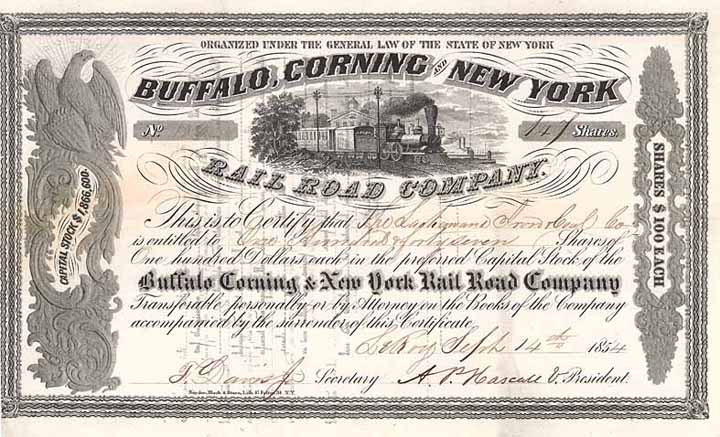 ORGANIZED UNDER THE GENERAL LAW OF THE STATE OF NEW YORK
BUFFALO, CORNING AND NEW YORK
No 147 Shares.
RAIL ROAD COMPANY.
CAPITAL STOCK $1,866,600.
SHARES $100 EACH
This is to Certify that The Iron & Coal Co
is entitled to One Hundred forty seven Shares of
One hundred Dollars each in the preferred Capital Stock of the
Buffalo Corning & New York Rail Road Company
Transferable personally or by Attorney on the Books of the Company
accompanied by the surrender of this Certificate.
LeRoy Sept 14th 1854
T. Davis Jr Secretary A. P. Hascall V. President.
Snyder, Black & Sturn, Lith. 87 Fulton St. N.Y.